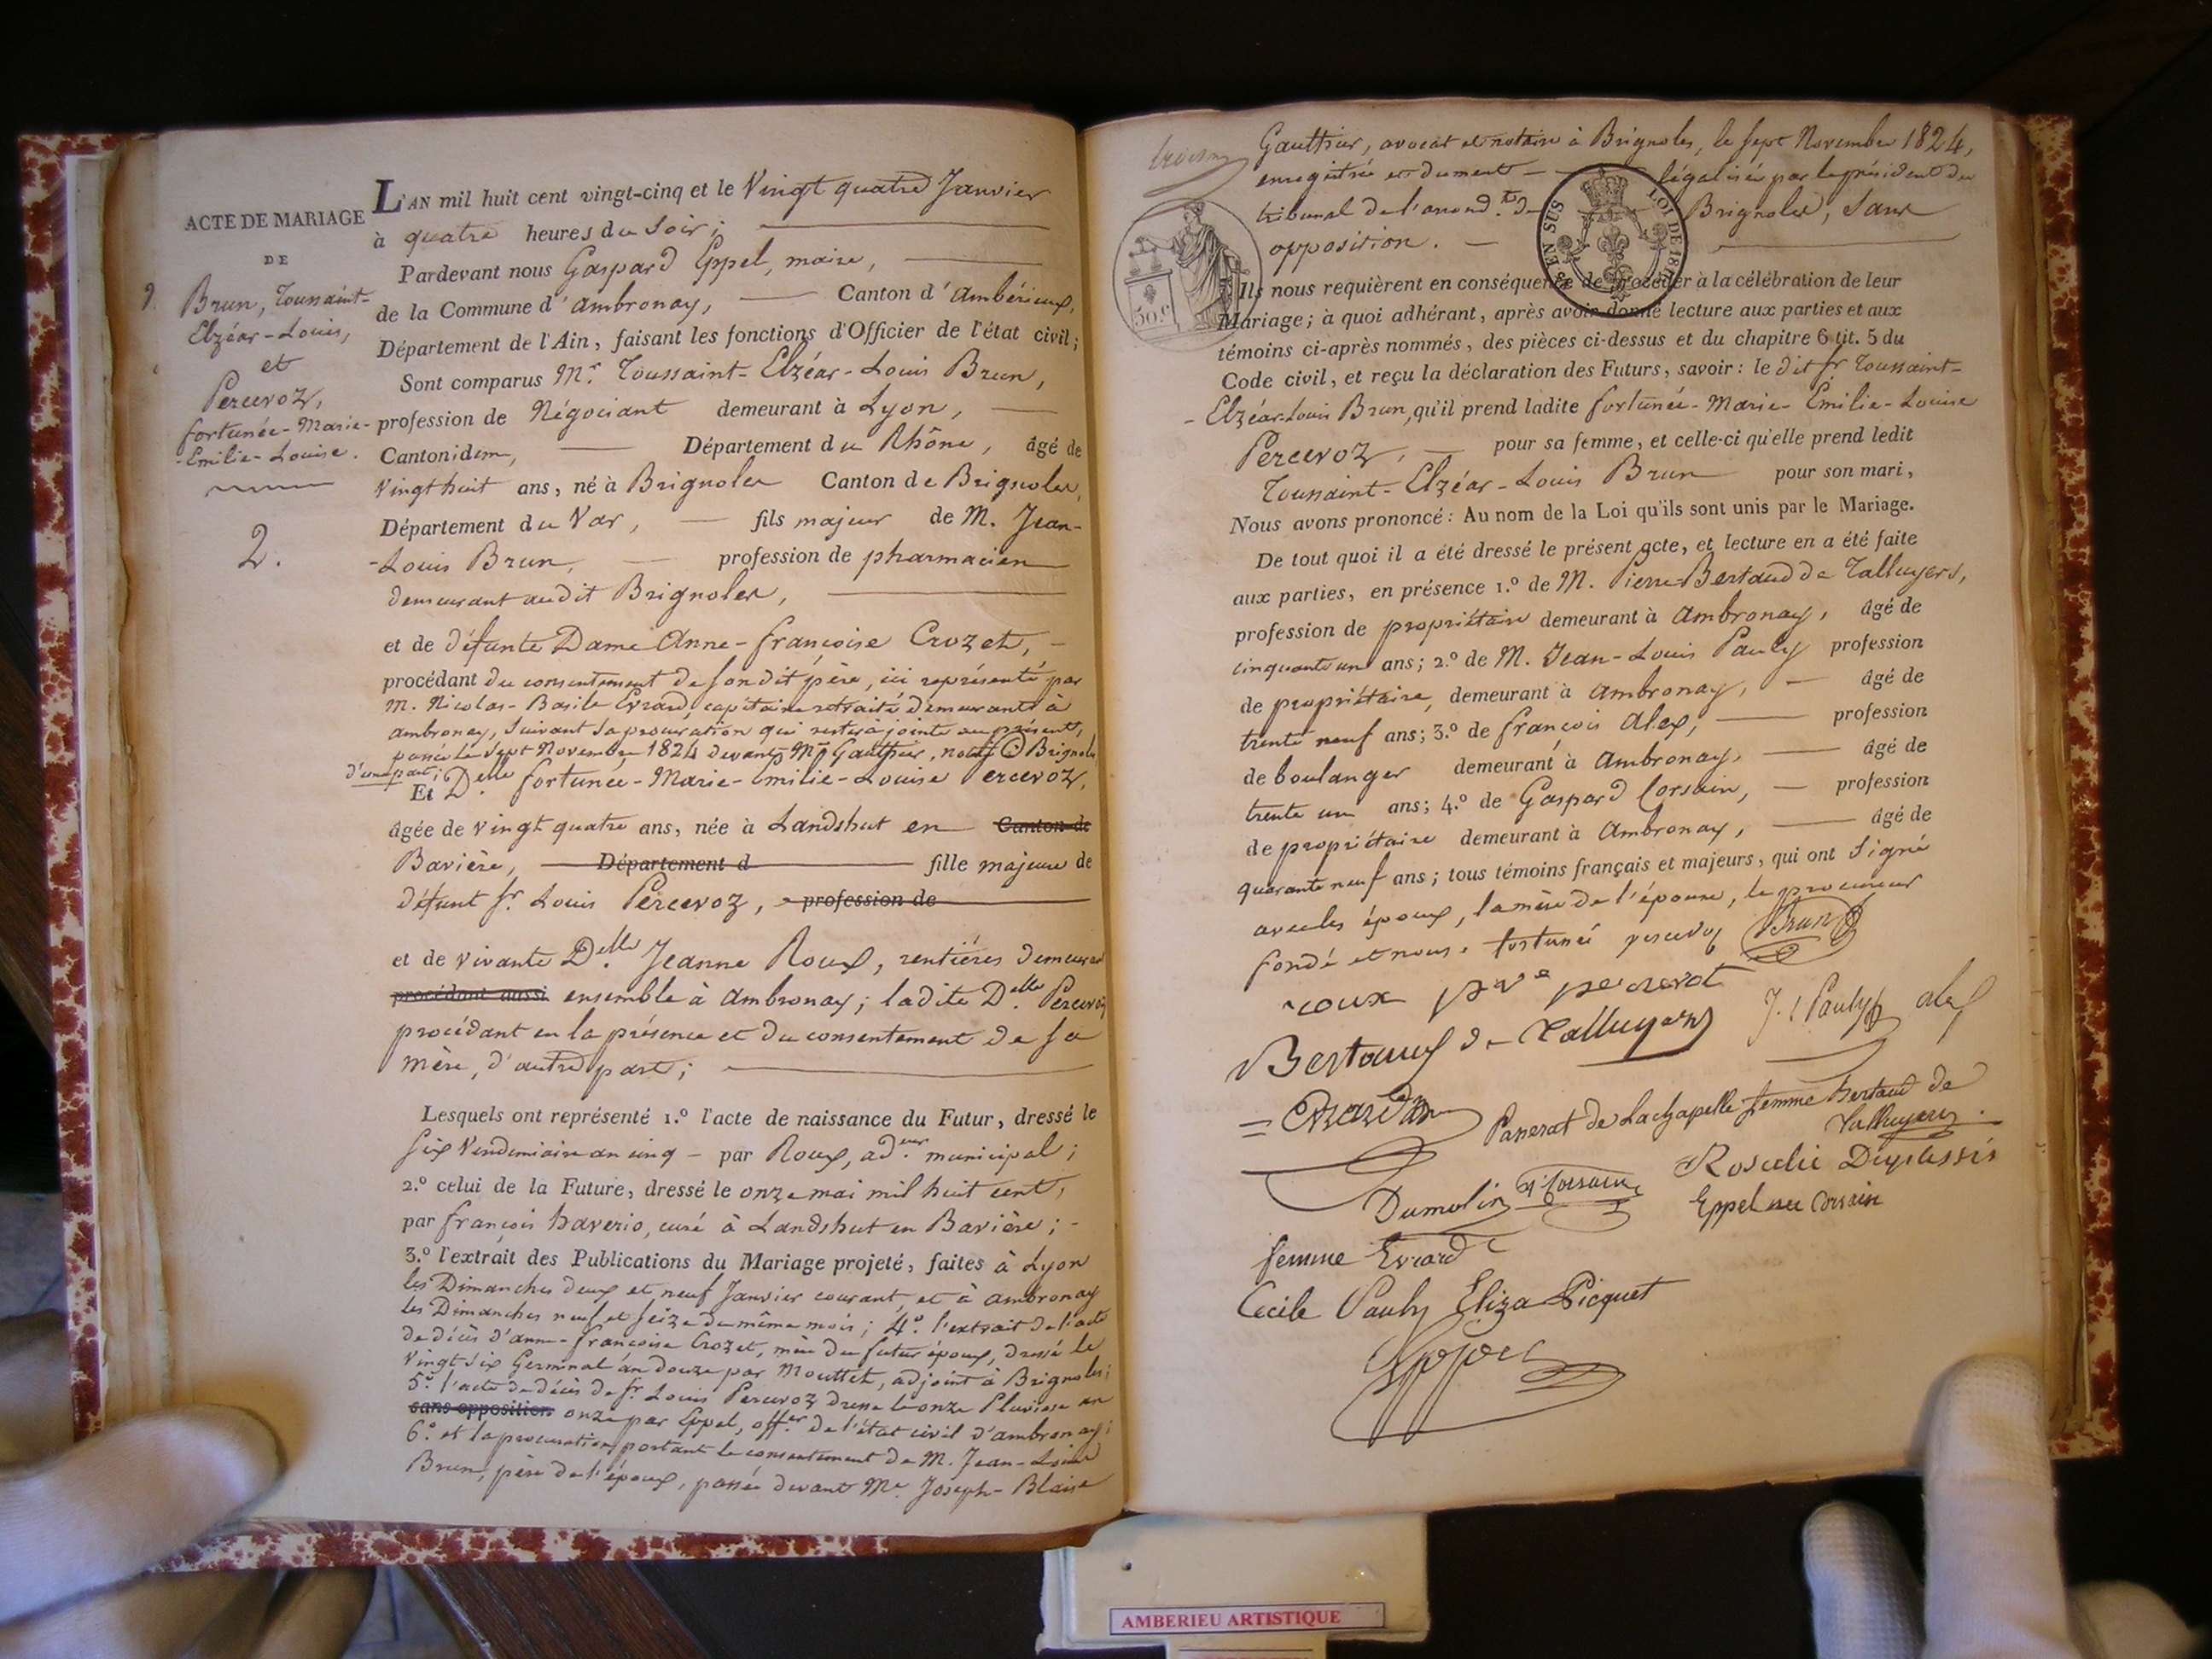 ACTE DE MARIAGE
DE
Brun, Toussaint-
Elzéar-Louis,
et
Percevoz,
fortunée-Marie-
-Emilie-Louise.
2.
L'AN mil huit cent vingt-cinq et le Vingt quatre Janvier
à quatre heures du Soir;
Pardevant nous Gaspard Eppel, maire,
de la Commune d'ambronay, Canton d'ambérieux,
Département de l'Ain, faisant les fonctions d'Officier de l'état civil;
Sont comparus Mr. Toussaint-Elzéar-Louis Brun,
profession de Négociant demeurant à Lyon,
Canton idem, Département du Rhône, âgé de
Vingt huit ans, né à Brignoles Canton de Brignoles,
Département du Var, fils majeur de M. Jean-
-Louis Brun, profession de pharmacien
demeurant audit Brignoles,
et de défunte Dame Anne-françoise Crozet,
procédant du consentement de son dit père, ici représenté par
M. Nicolas-Basile Evrard, capitaine retraité demeurant à
ambronay, suivant sa procuration qui restera jointe au présent,
passée le sept Novembre 1824 devant Me Gauthier, notre à Brignoles
d'une part;
Et Delle fortunée-Marie-Emilie-Louise Percevoz,
âgée de vingt quatre ans, née à Landshut en Canton de
Bavière, Département d fille majeure de
défunt Sr. Louis Percevoz, profession de
et de vivante Delle Jeanne Roux, rentières demeurant
procédant aussi ensemble à ambronay; ladite Delle Percevoz
procédant en la présence et du consentement de sa
mère, d'autre part;
Lesquels ont représenté 1.º l'acte de naissance du Futur, dressé le
six Vendemiaire an cinq - par Roux, ad.eur municipal;
2.º celui de la Future, dressé le onze mai mil huit cent,
par françois haverio, curé à Landshut en Bavière; -
3.º l'extrait des Publications du Mariage projeté, faites à Lyon
les Dimanches deux et neuf Janvier courant, et à ambronay
les Dimanches neuf et seize du même mois; 4.º l'extrait de l'acte
de décès d'anne-françoise Crozet, mère du futur époux, dressé le
Vingt six Germinal an douze par Mouttet, adjoint à Brignoles;
5.º l'acte de décès de Sr. Louis Percevoz dressé le onze Pluviose an
sans opposition onze par Eppel, offer. de l'état civil d'ambronay;
6.º et la procuration portant le consentement de M. Jean-Louis
Brun, père de l'époux, passée devant Me. Joseph-Blaise
Gauthier, avocat et notaire à Brignoles, le sept Novembre 1824,
enregistrée et dument légalisée par le président du
tribunal de l'arrond.t de Brignoles, sans
opposition.
50.c
EN SUS
LOI DE 181
Ils nous requièrent en conséquence de procéder à la célébration de leur
Mariage; à quoi adhérant, après avoir donné lecture aux parties et aux
témoins ci-après nommés, des pièces ci-dessus et du chapitre 6 tit. 5 du
Code civil, et reçu la déclaration des Futurs, savoir: le dit Sr Toussaint-
-Elzéar-Louis Brun, qu'il prend ladite fortunée-Marie-Emilie-Louise
Percevoz, pour sa femme, et celle-ci qu'elle prend ledit
Toussaint-Elzéar-Louis Brun pour son mari,
Nous avons prononcé: Au nom de la Loi qu'ils sont unis par le Mariage.
De tout quoi il a été dressé le présent acte, et lecture en a été faite
aux parties, en présence 1.º de M. Pierre Bertaud de Talluyers,
profession de propriétaire demeurant à ambronay, âgé de
cinquante un ans; 2.º de M. Jean-Louis Pauly profession
de propriétaire, demeurant à ambronay, âgé de
trente neuf ans; 3.º de françois alex, profession
de boulanger demeurant à ambronay, âgé de
trente un ans; 4.º de Gaspard Corsain, profession
de propriétaire demeurant à ambronay, âgé de
quarante neuf ans; tous témoins français et majeurs, qui ont signé
avec les époux, la mère de l'épouse, le procureur
fondé et nous. fortunée percevoz Brun
roux pve percevot
J. l Pauly alex
Bertaud de Talluyers
Evrard
Passerat de Lachapelle femme Bertaud de
Talluyers.
Dumolin G Corsain
Rosalie Duplessis
Eppel née Corsain
femme Evrard
Cécile Pauly Eliza Picquet
Eppel
AMBERIEU ARTISTIQUE